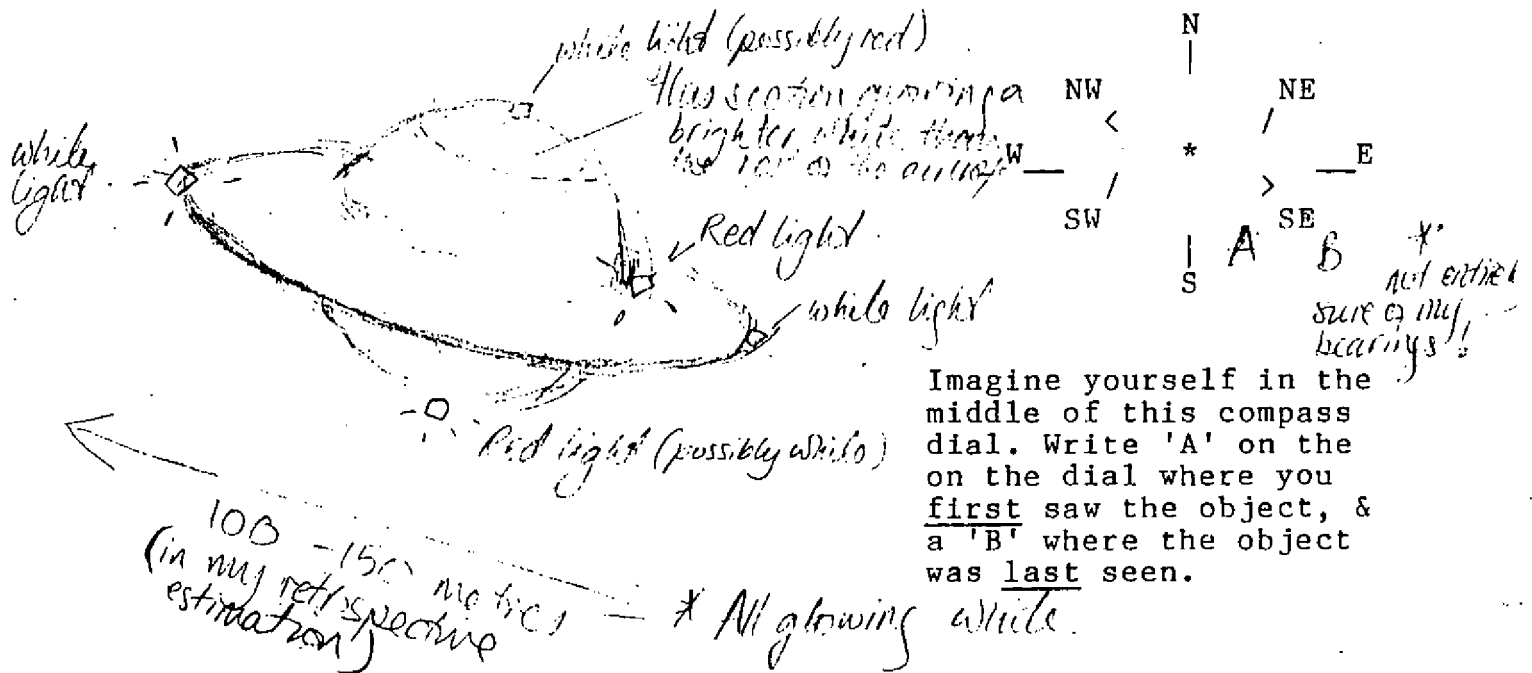 white light (possibly red)
This section glowing a
brighter white than
the rest of the
white
light
Red light
white light
Red light (possibly white)
100 - 150 metres
(in my retrospective
estimation)
* All glowing white.
N
NW NE
W * E
SW SE
S
A B
*
not entirely
sure of my
bearings!
Imagine yourself in the
middle of this compass
dial. Write 'A' on the
on the dial where you
first saw the object, &
a 'B' where the object
was last seen.